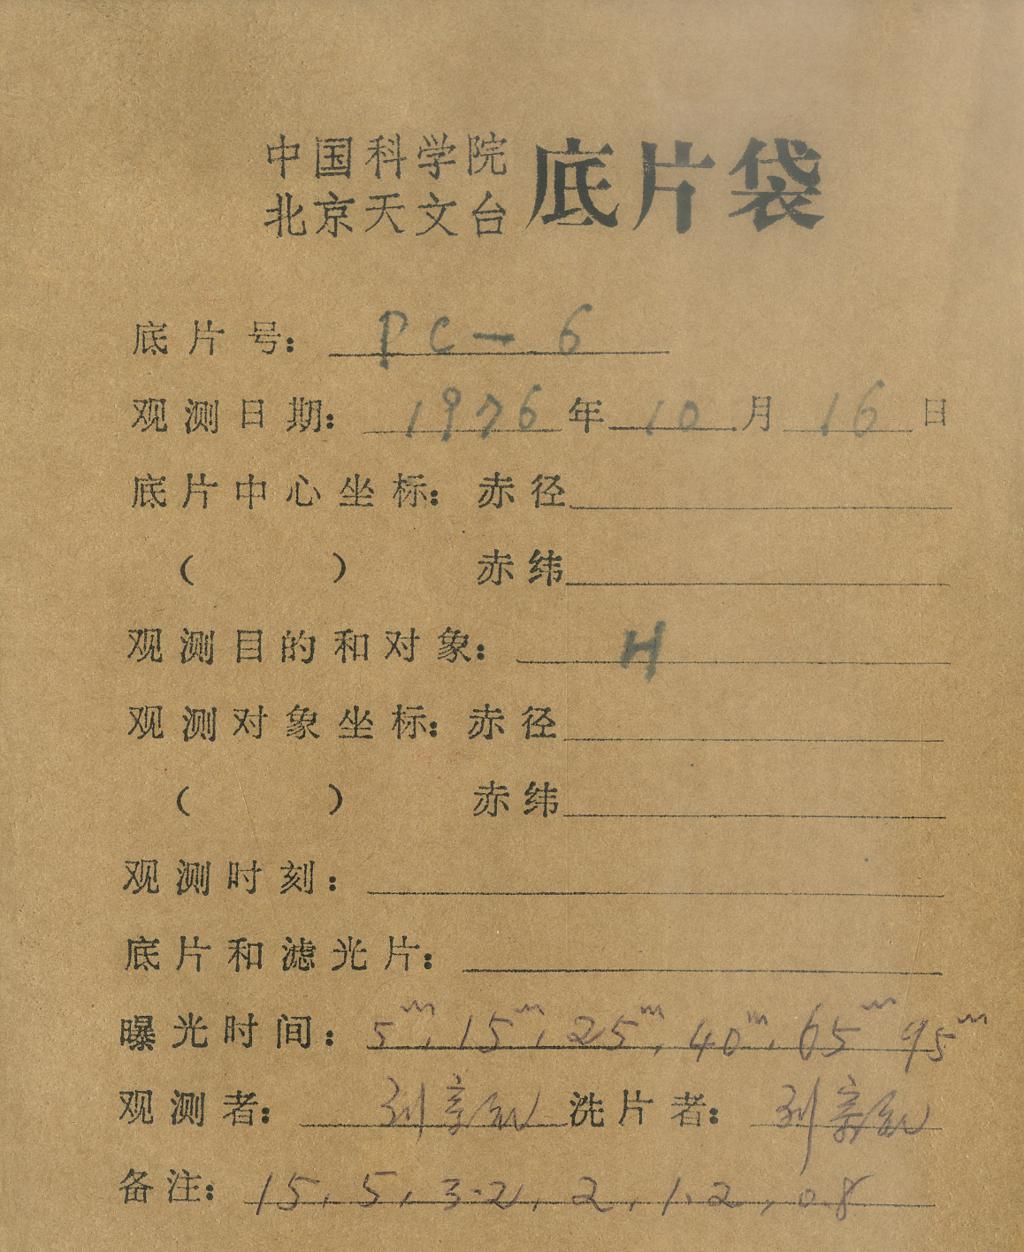 中国科学院
北京天文台 底片袋
底片号： PC—6
观测日期： 1976年10月16日
底片中心坐标：赤径
（ ） 赤纬
观测目的和对象： H
观测对象坐标：赤径
（ ） 赤纬
观测时刻：
底片和滤光片：
曝光时间： 5ᵐ, 15ᵐ, 25ᵐ, 40ᵐ, 65ᵐ 95ᵐ
观测者： 洗片者：
备注： 15, 5, 3.2, 2, 1.2, 0.8